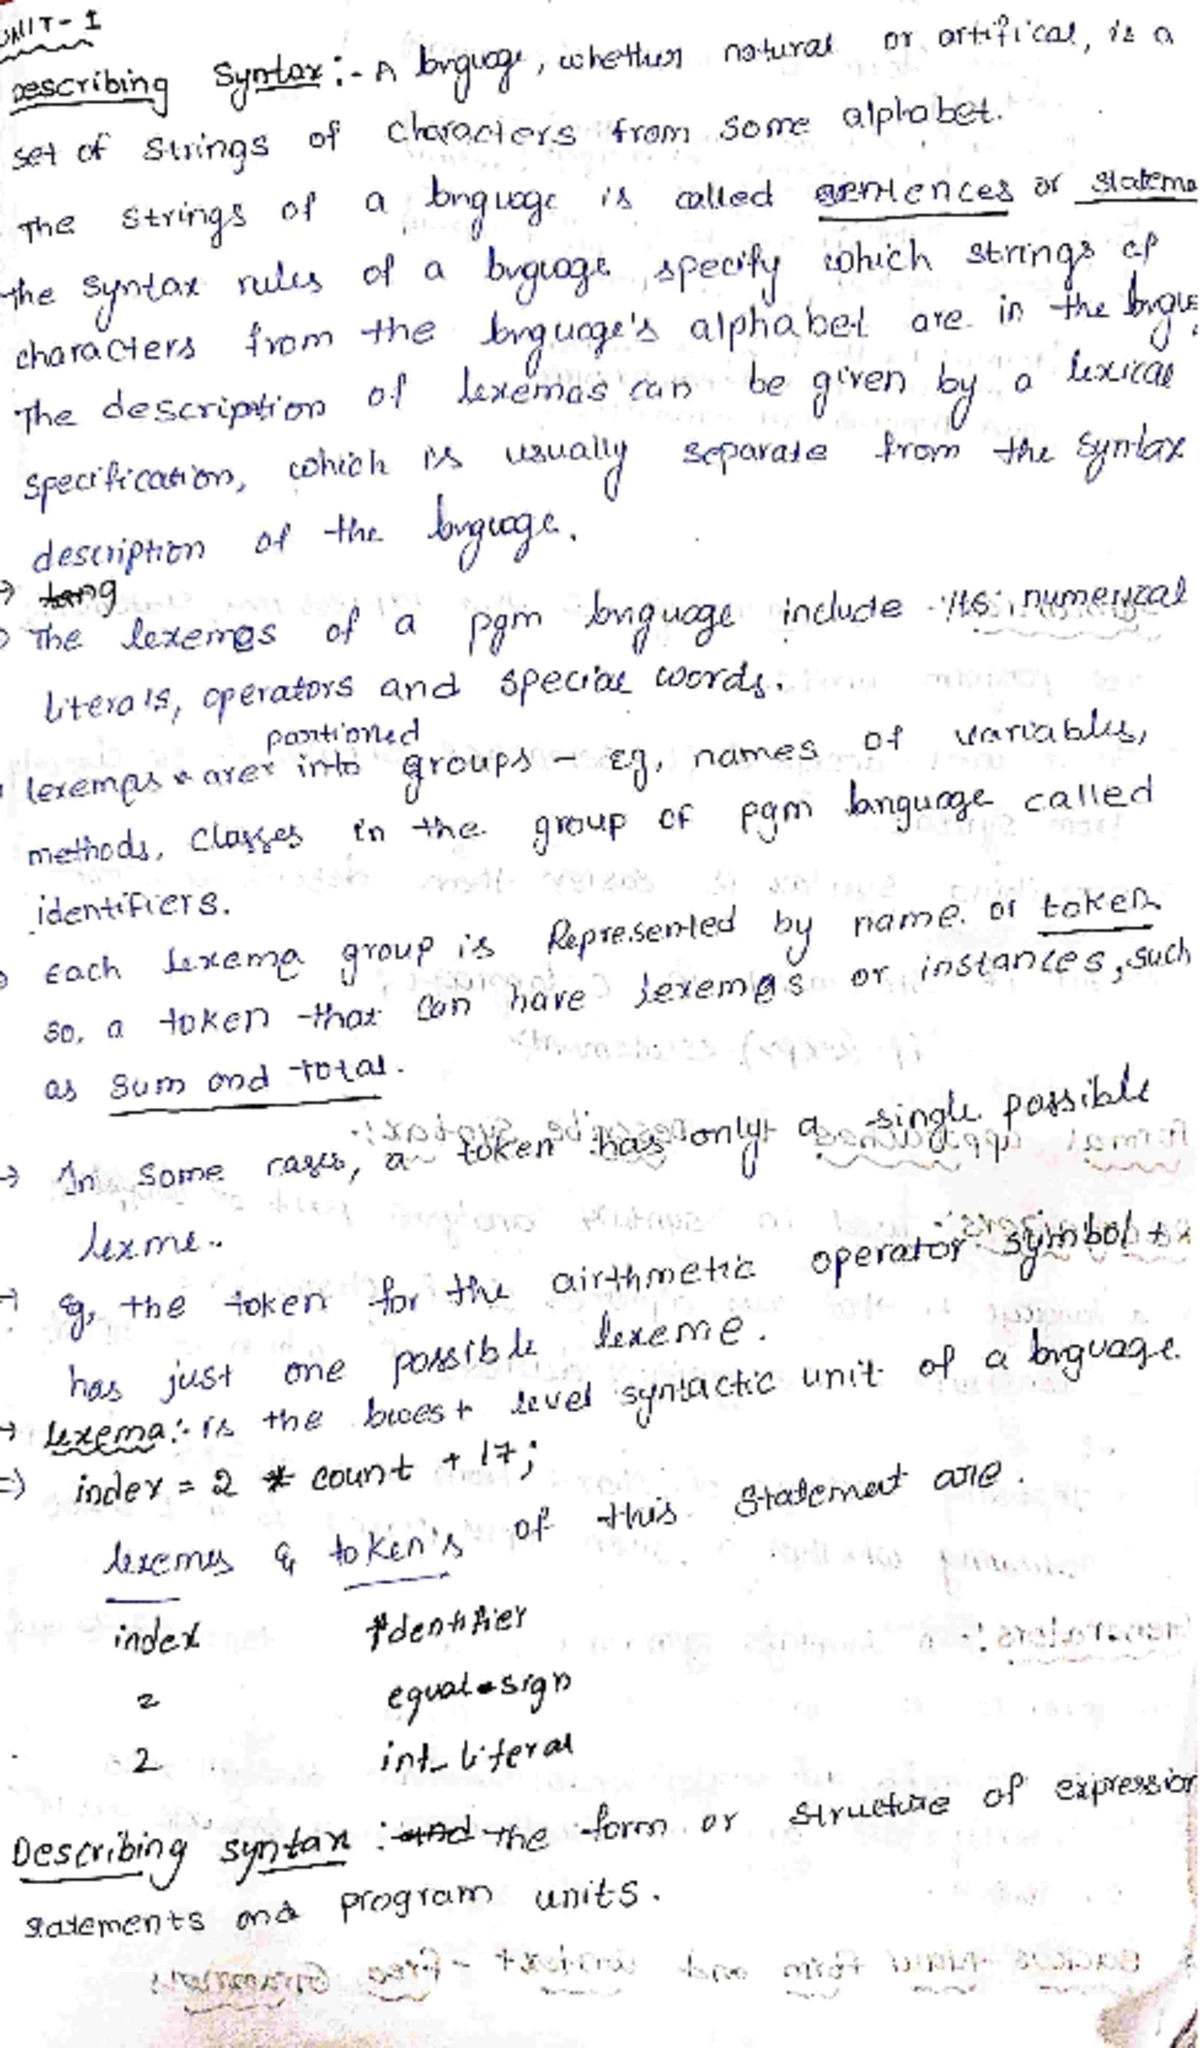 UNIT - I
Describing Syntax :- A language, whether natural or artifical, is a
set of strings of characters from some alphabet.
The strings of a language is called sentences or stateme
the syntax rules of a language specify which strings of
characters from the language's alphabet are in the langue
The description of lexemas can be given by a lexical
specification, which is usually separate from the syntax
description of the language.
→ tang
The lexemes of a pgm language include its numerical
literals, operators and special words.
partioned
lexemes are into groups - eg, names of variables,
methods, Classes in the group of pgm language called
identifiers.
Each lexema group is Represented by name or token
so, a token that can have lexemes or instances, such
as sum and total.
→ In some cases, a token has only a single possible
lexme..
→ Eg, the token for the airthmetic operator symbol +
has just one possible lexeme.
→ lexema :- is the lowest level syntactic unit of a language.
=) index = 2 * count + 17;
lexemes & token's of this statement are.
index Identifier
= equal sign
2 int_literal
Describing syntax : and the form or structure of expression
statements and program units.